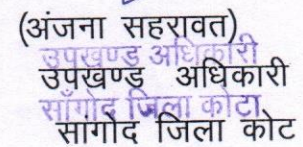 (अंजना सहरावत)
उपखण्ड अधिकारी
उपखण्ड अधिकारी
साँगोद जिला कोटा
सांगोद जिला कोट